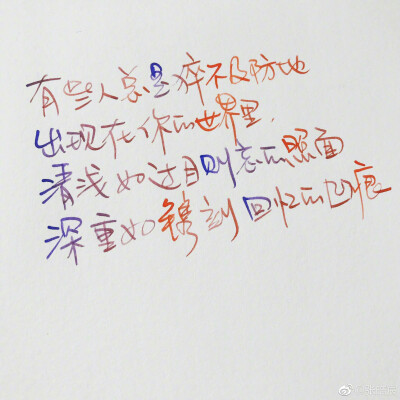 有些人总是猝不及防地
出现在你的世界里.
清浅如过目则忘的照面
深重如镌刻回忆的凹痕